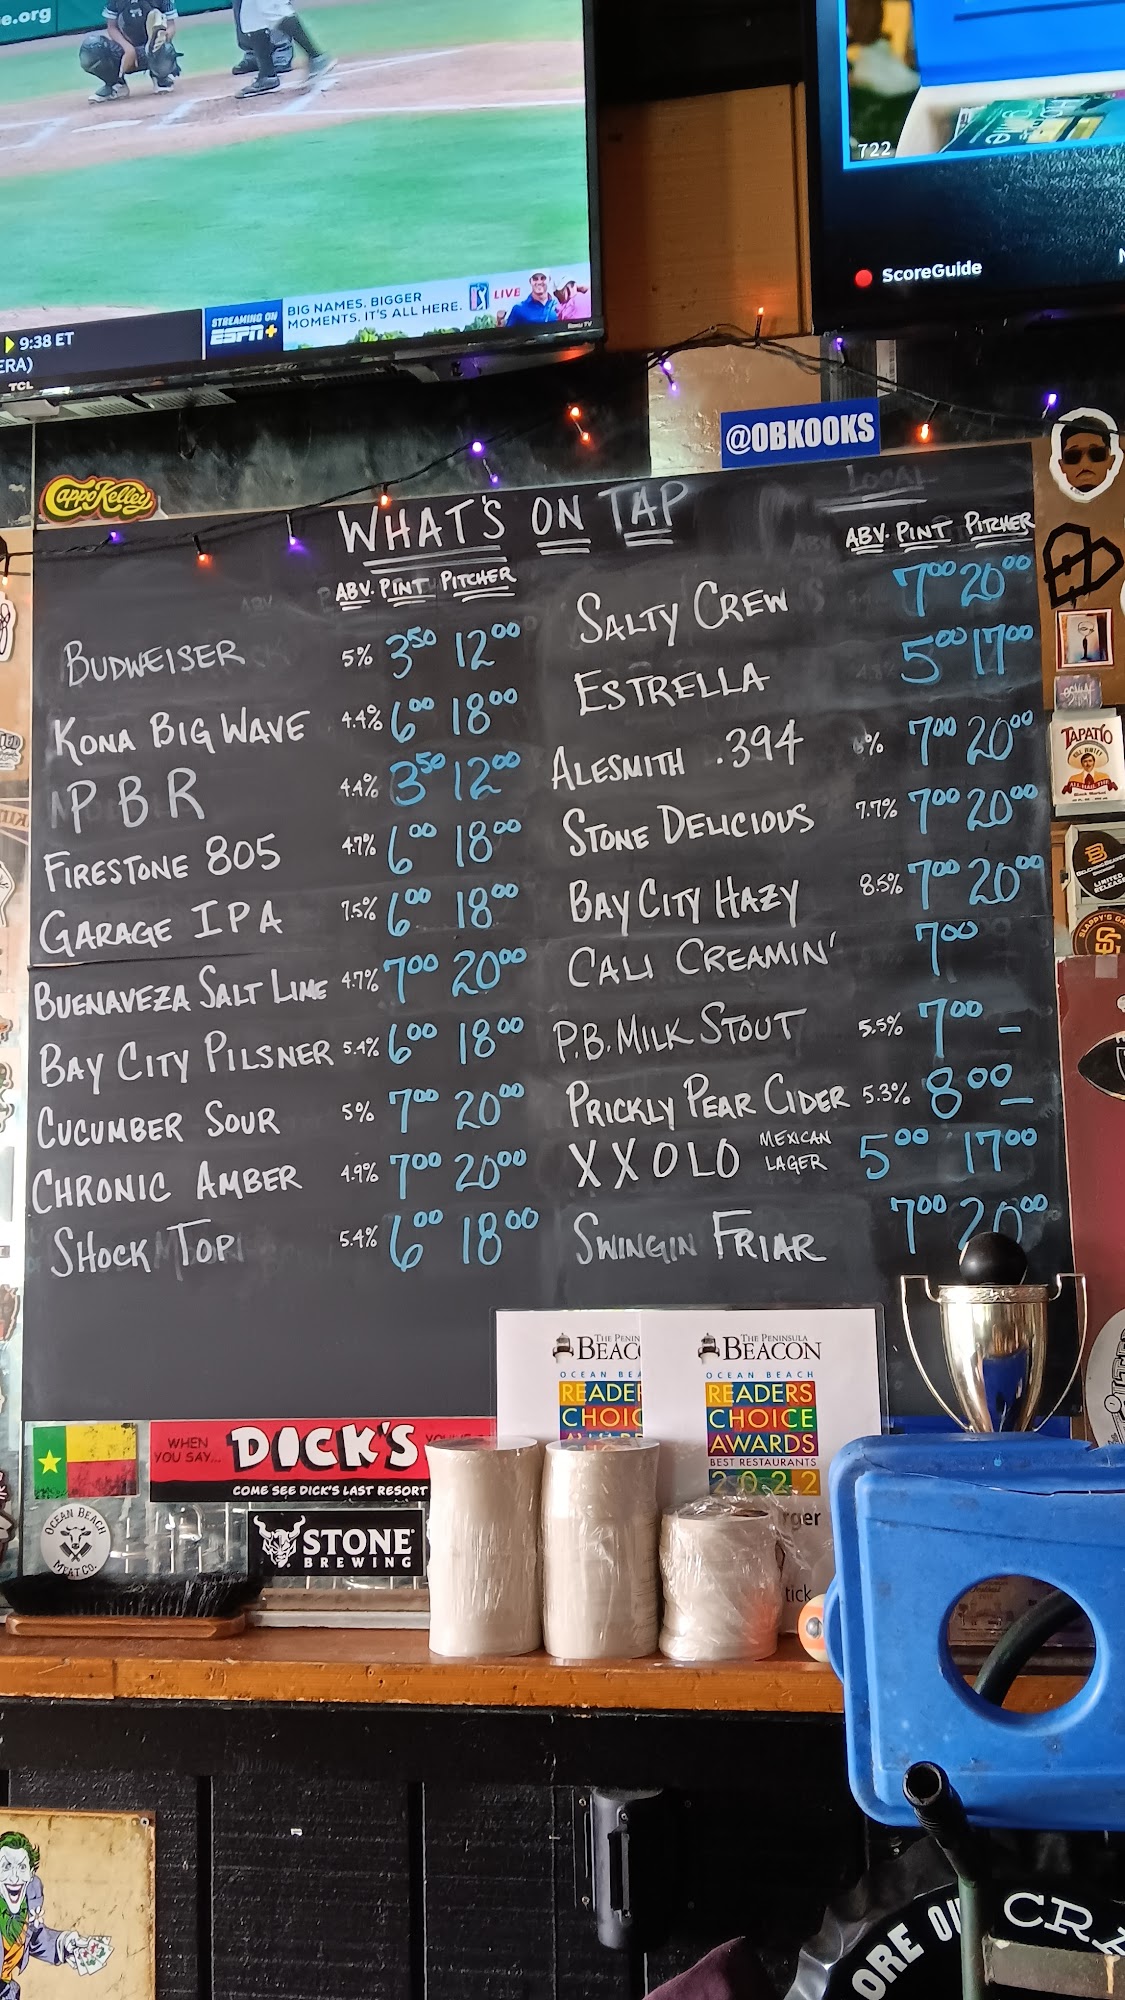 e.org
9:38 ET
ERA)
TCL
STREAMING ON
ESPN+
BIG NAMES. BIGGER
MOMENTS. IT'S ALL HERE.
LIVE
Roku TV
722
ScoreGuide
@OBKOOKS
CappoKelley
WHAT'S ON TAP
LOCAL
ABV. PINT PITCHER
BUDWEISER 5% 3.50 12.00
KONA BIG WAVE 4.4% 6.00 18.00
PBR 4.4% 3.50 12.00
FIRESTONE 805 4.7% 6.00 18.00
GARAGE IPA 7.5% 6.00 18.00
BUENAVEZA SALT LIME 4.7% 7.00 20.00
BAY CITY PILSNER 5.4% 6.00 18.00
CUCUMBER SOUR 5% 7.00 20.00
CHRONIC AMBER 4.9% 7.00 20.00
SHOCK TOP 5.4% 6.00 18.00
ABV. PINT PITCHER
SALTY CREW 7.00 20.00
ESTRELLA 5.00 17.00
ALESMITH .394 % 7.00 20.00
STONE DELICIOUS 7.7% 7.00 20.00
BAY CITY HAZY 8.5% 7.00 20.00
CALI CREAMIN' 7.00
P.B. MILK STOUT 5.5% 7.00 –
PRICKLY PEAR CIDER 5.3% 8.00 –
XX OLO MEXICAN LAGER 5.00 17.00
SWINGIN FRIAR 7.00 20.00
TAPATIO
LIMITED
RELEASE
SLAPPY'S
THE PENIN
BEAC
OCEAN BEA
READE
CHOIC
THE PENINSULA
BEACON
OCEAN BEACH
READERS
CHOICE
AWARDS
BEST RESTAURANTS
2022
rger
tick
WHEN
YOU SAY...
DICK'S
COME SEE DICK'S LAST RESORT
OCEAN BEACH
MEAT CO.
STONE
BREWING
ORE OU
CRA